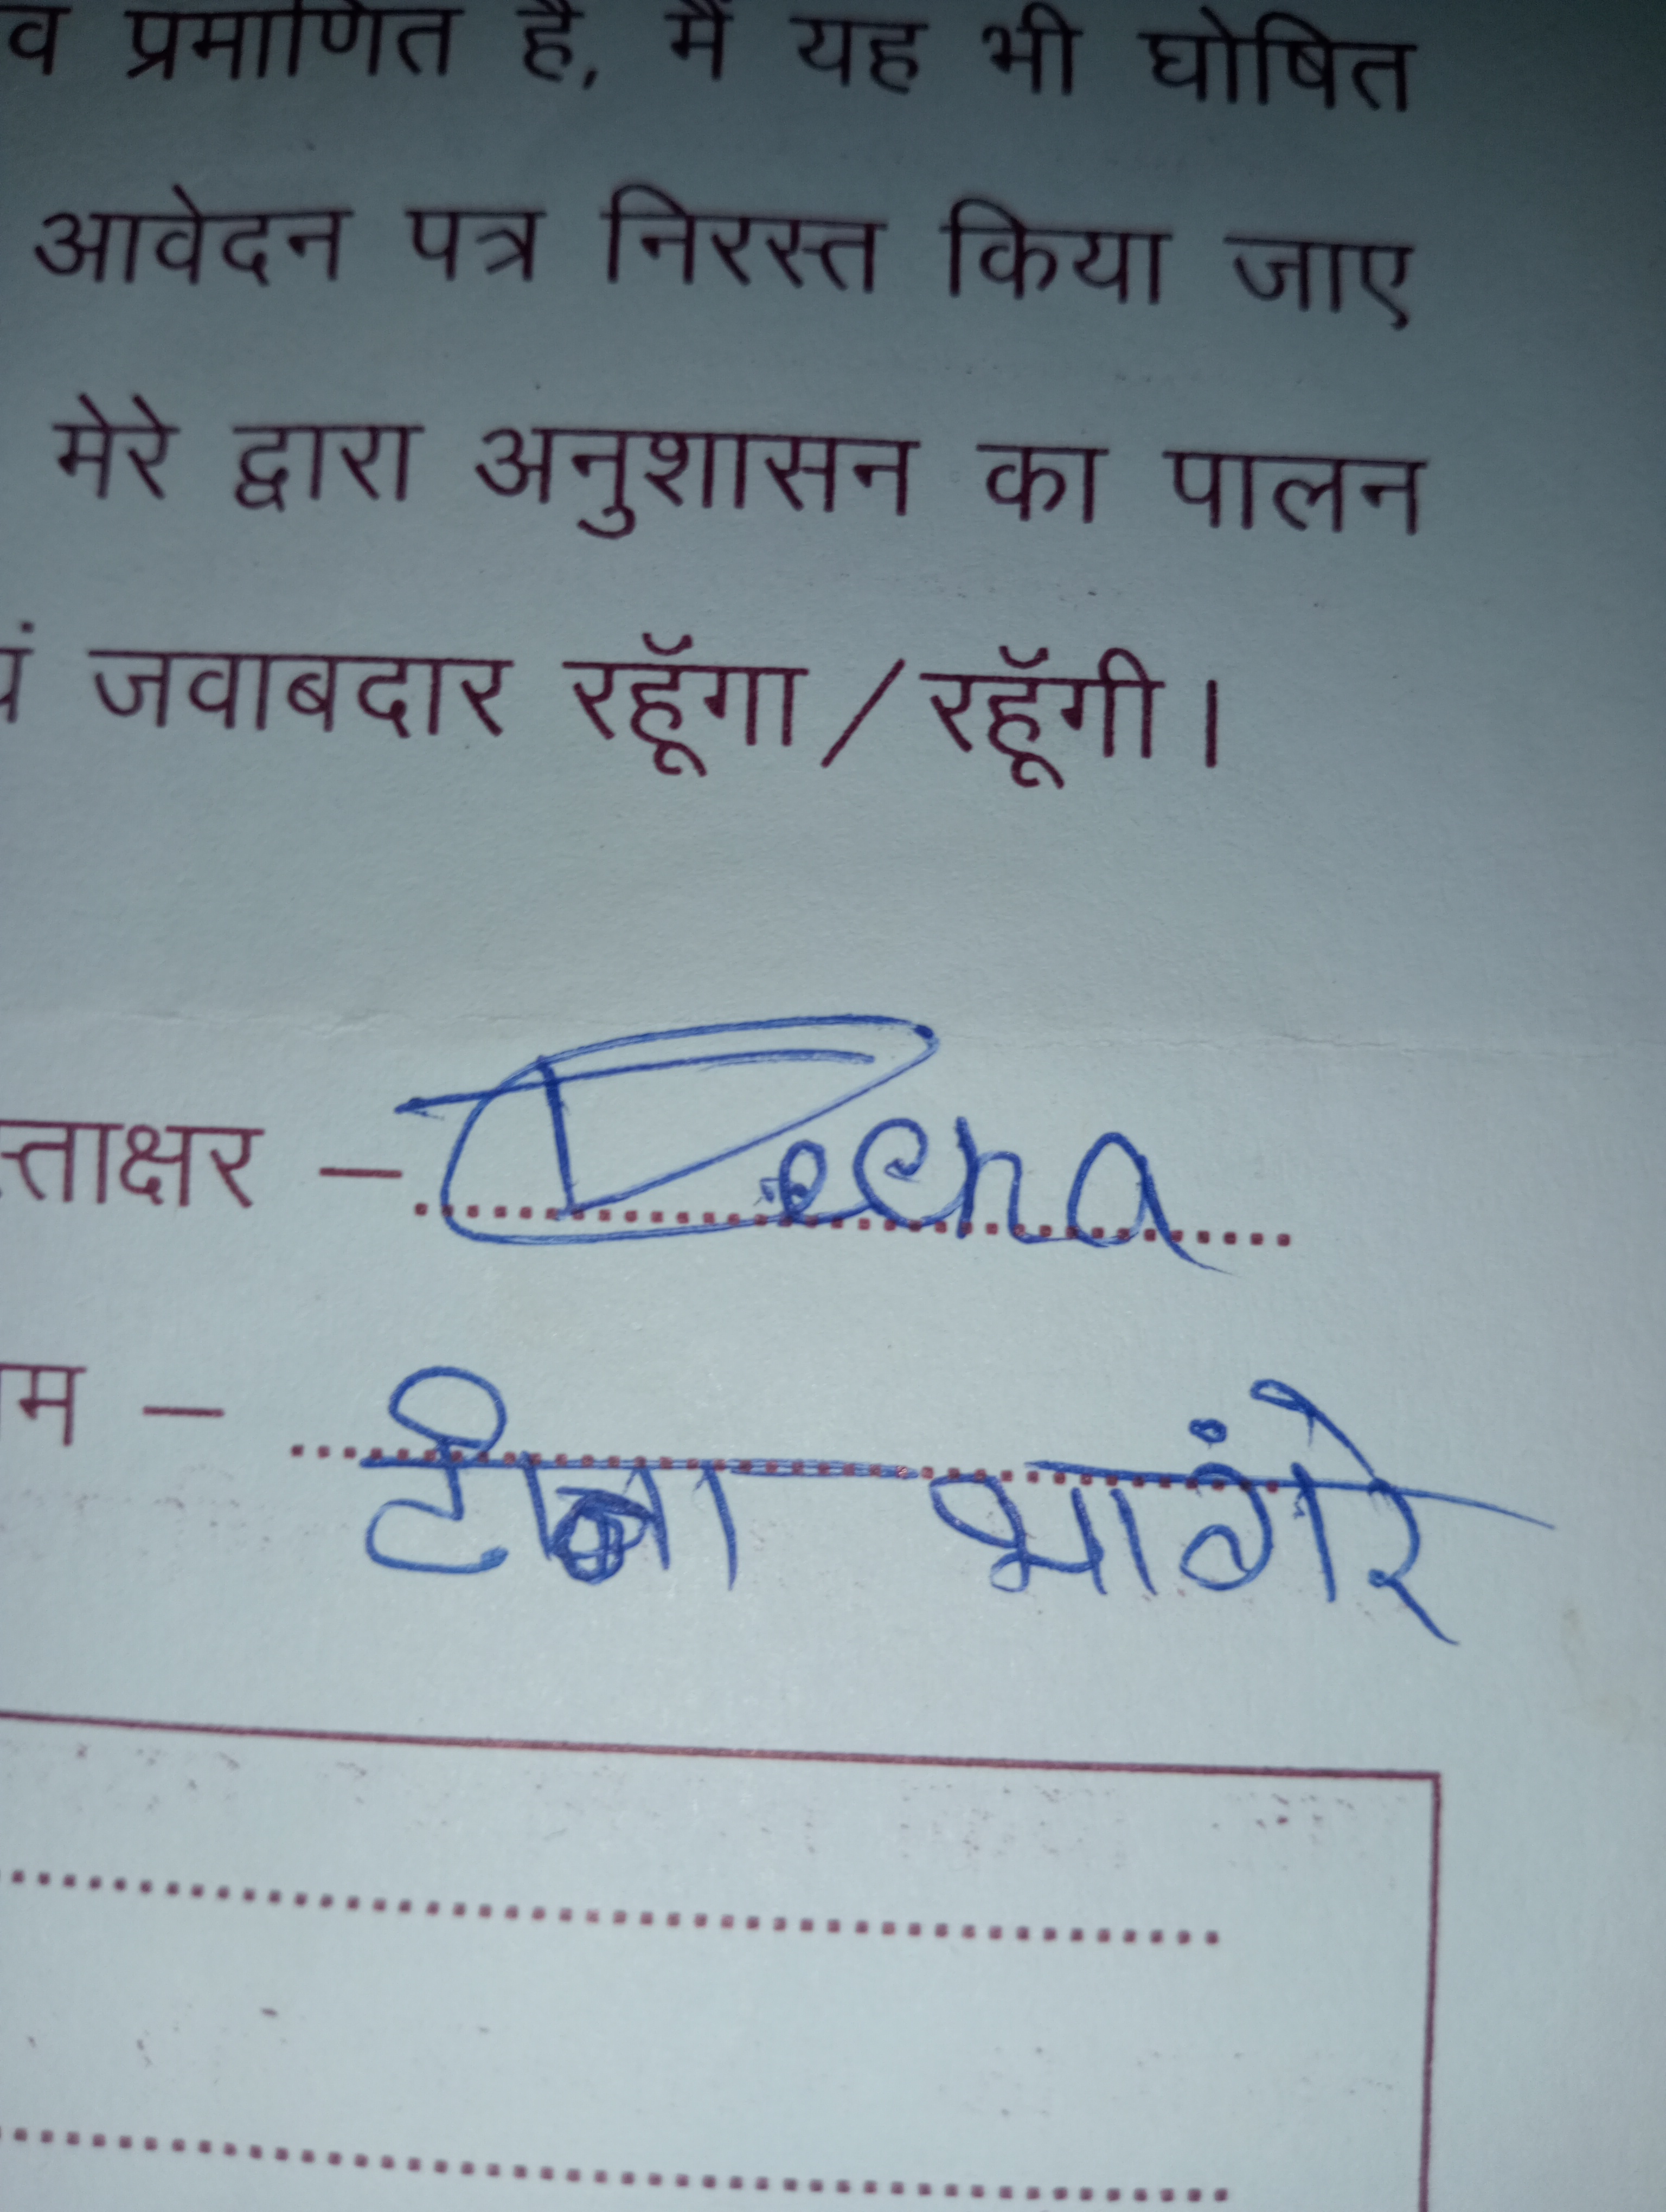 व प्रमाणित है, मैं यह भी घोषित
आवेदन पत्र निरस्त किया जाए
मेरे द्वारा अनुशासन का पालन
यं जवाबदार रहूॅंगा/रहूॅंगी।
स्ताक्षर – Teena
म – टीना भांगरे